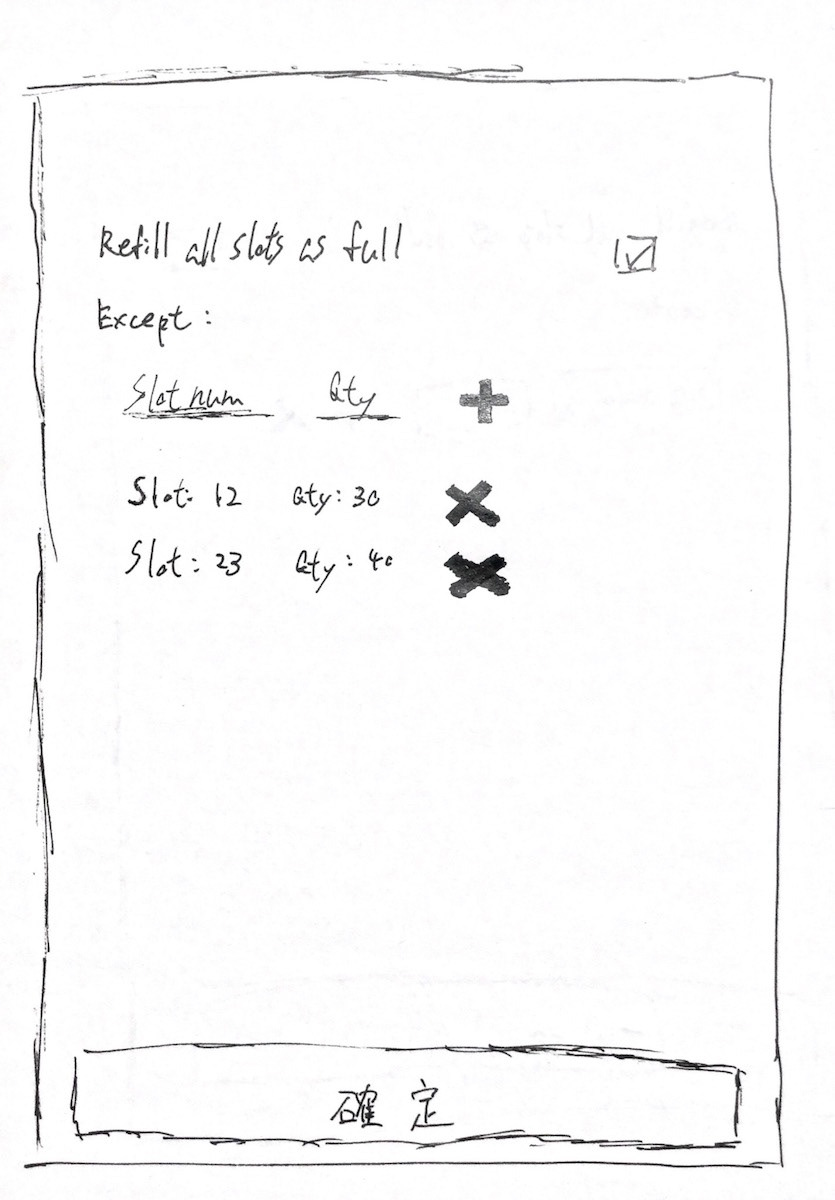 Refill all slots as full
Except :
Slot num Qty
Slot: 12 Qty: 30
Slot: 23 Qty: 40
確定